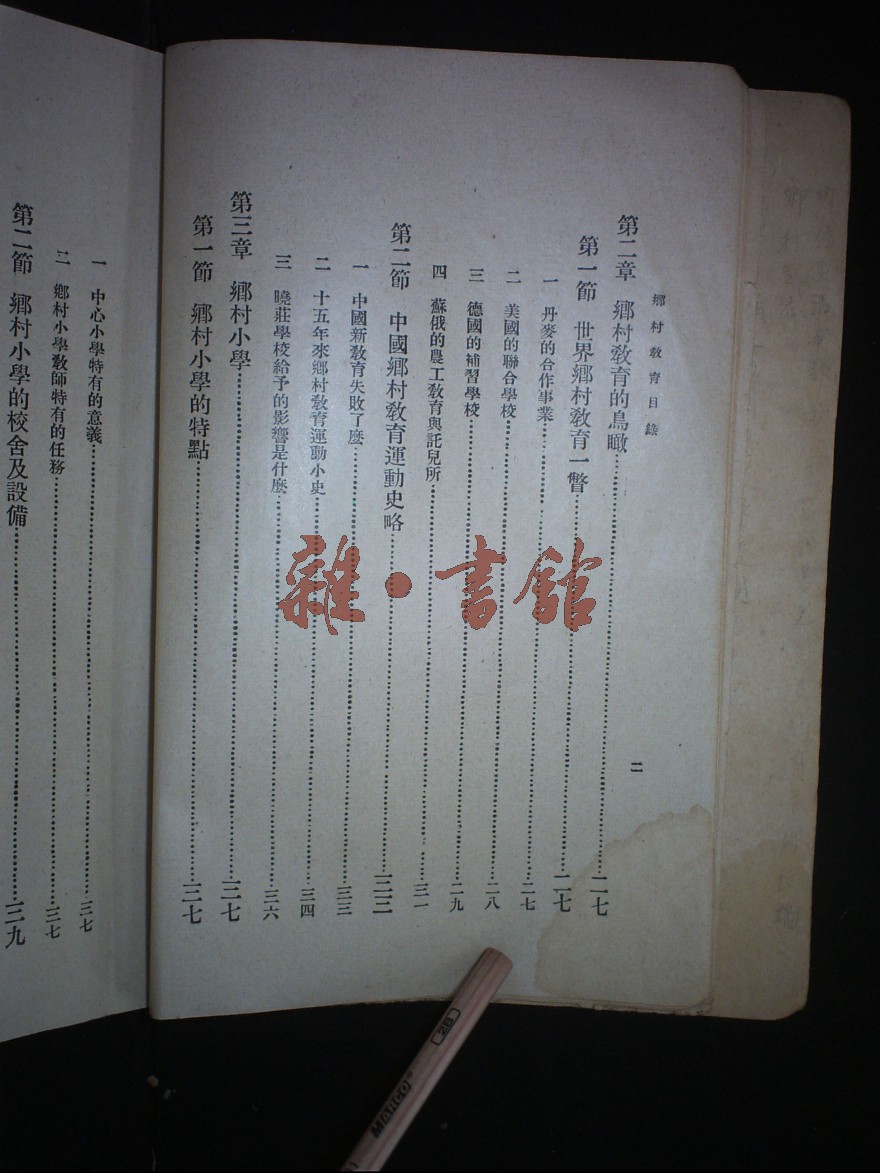 鄉村教育目錄
二
第二章 鄉村教育的鳥瞰……二七
第一節 世界鄉村教育一瞥……二七
一 丹麥的合作事業……二七
二 美國的聯合學校……二八
三 德國的補習學校……二九
四 蘇俄的農工教育與託兒所……三一
第二節 中國鄉村教育運動史略……三三
一 中國新教育失敗了麽……三三
二 十五年來鄉村教育運動小史……三四
三 曉莊學校給予的影響是什麽……三六
第三章 鄉村小學……三七
第一節 鄉村小學的特點……三七
一 中心小學特有的意義……三七
二 鄉村小學教師特有的任務……三七
第二節 鄉村小學的校舍及設備……三九
雜·書館
MARCO
2B